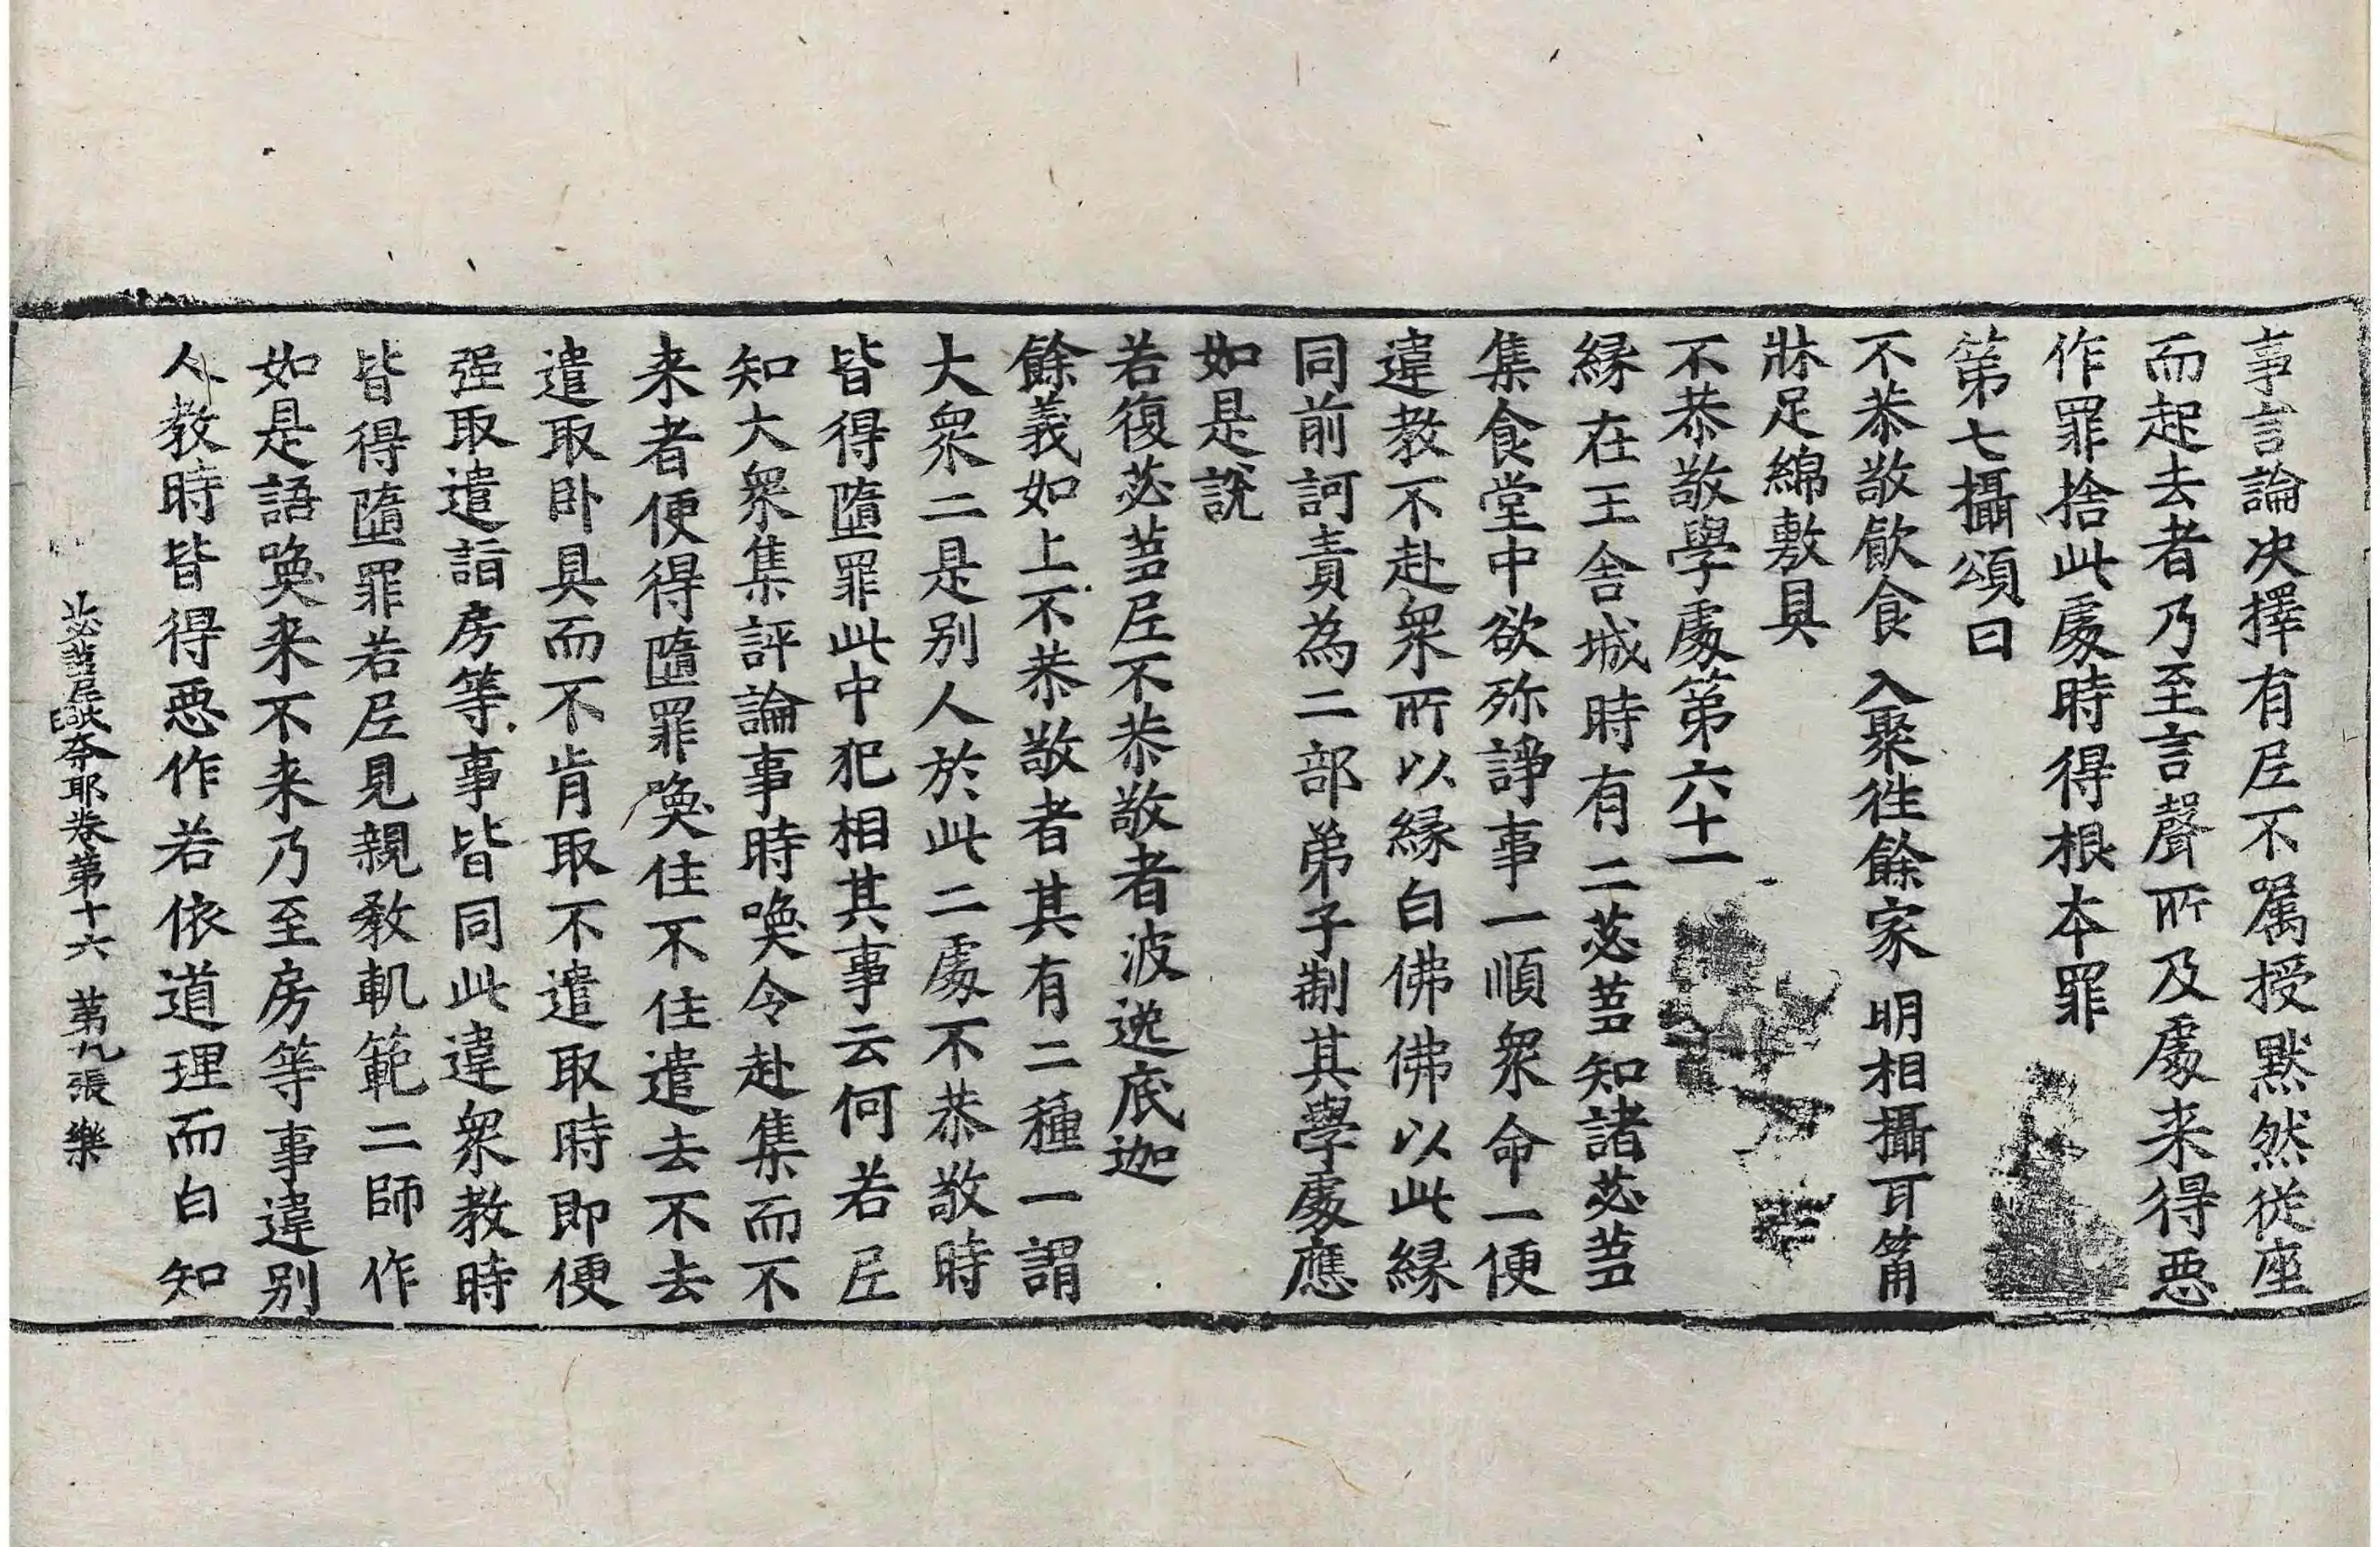 事言論决擇有尼不囑授默然従座
而起去者乃至言聲所及處来得惡
作罪捨此處時得根夲罪
第七攝頌曰
不恭敬飲食 入聚徃餘家 明相攝耳筩
牀足綿敷具
不恭敬學處第六十一
縁在王舎城時有二苾蒭知諸苾蒭
集食堂中欲殄諍事一順衆命一便
違教不赴衆所以縁白佛佛以此縁
同前訶責為二部弟子制其學處應
如是說
若復苾蒭尼不恭敬者波逸底迦
餘義如上不恭敬者其有二種一謂
大衆二是别人於此二處不恭敬時
皆得隨罪此中犯相其事云何若尼
知大衆集評論事時喚令赴集而不
来者便得隨罪喚住不住遣去不去
遣取卧具而不肯取不遣取時即便
强取遣詣房等事皆同此違衆教時
皆得隨罪若尼見親教軌範二師作
如是語喚来不来乃至房等事違别
人教時皆得惡作若依道理而白知
苾蒭尼毗奈耶卷第十六 第九張 樂